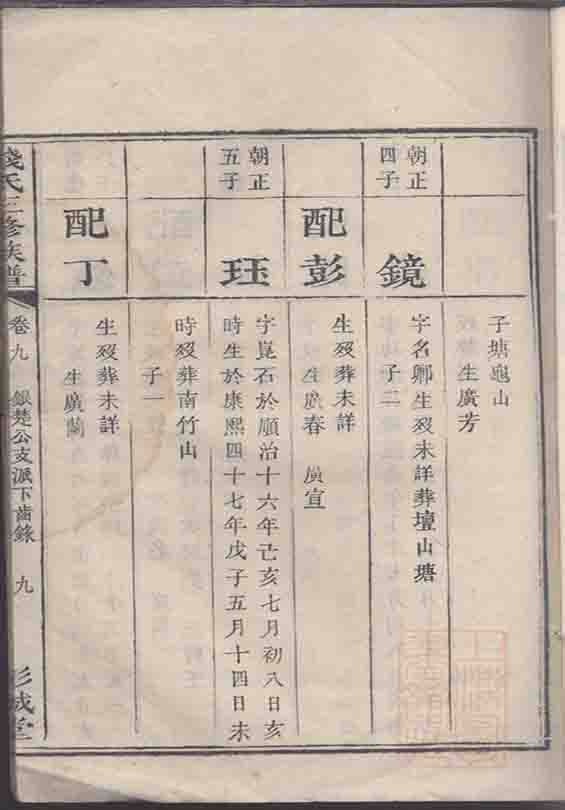 子塘龜山
生廣芳
朝正
四子
鏡
字名卿生歿未詳葬壇山塘
子二
配彭
生歿葬未詳
生廣春 廣宣
朝正
五子
珏
字崑石於順治十六年己亥七月初八日亥
時生於康熙四十七年戊子五月十四日未
時歿葬南竹山
子一
配丁
生歿葬未詳
生廣蘭
錢氏三修族譜 卷九 銀楚公支派下齒錄 九 彭城堂